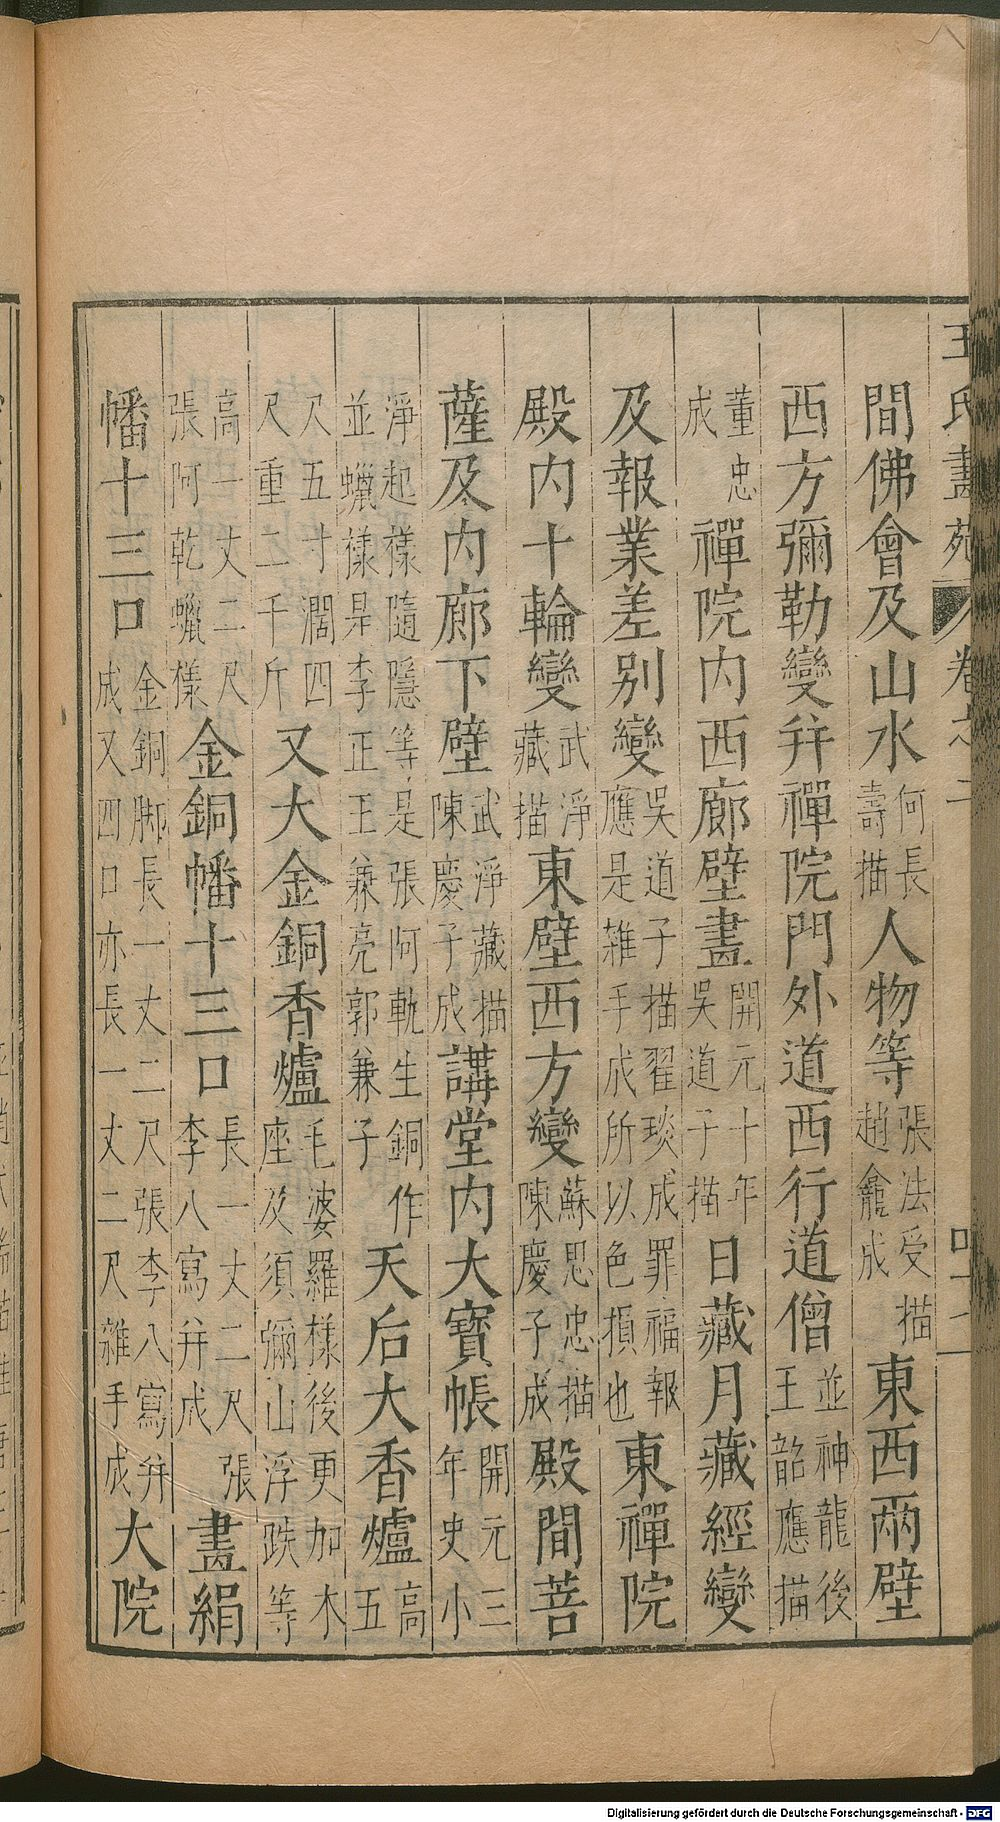 王氏畫苑 卷之二 四十二
間佛會及山水何長壽描人物等張法受描趙龕成東西兩壁
西方彌勒變并禪院門外道西行道僧並神龍後王韶應描
董忠成禪院内西廊壁畫開元十年吳道子描日藏月藏經變
及報業差别變吳道子描翟琰成罪福報應是雜手成所以色損也東禪院
殿内十輪變武淨藏描東壁西方變蘇思忠描陳慶子成殿間菩
薩及内廊下壁武淨藏描陳慶子成講堂内大寶帳開元三年史小
淨起樣隨隱等是張阿軌生銅作並蠟樣是李正王兼亮郭兼子天后大香爐高五
尺五寸濶四尺重二千斤又大金銅香爐毛婆羅樣後更加木座及須彌山浮趺等
高一丈二尺張阿乾蠟樣金銅幡十三口長一丈二尺張李八寫并成畫絹
幡十三口金銅脚長一丈二尺張李八寫并成又四口亦長一丈二尺雜手成大院
Digitalisierung gefördert durch die Deutsche Forschungsgemeinschaft - DFG